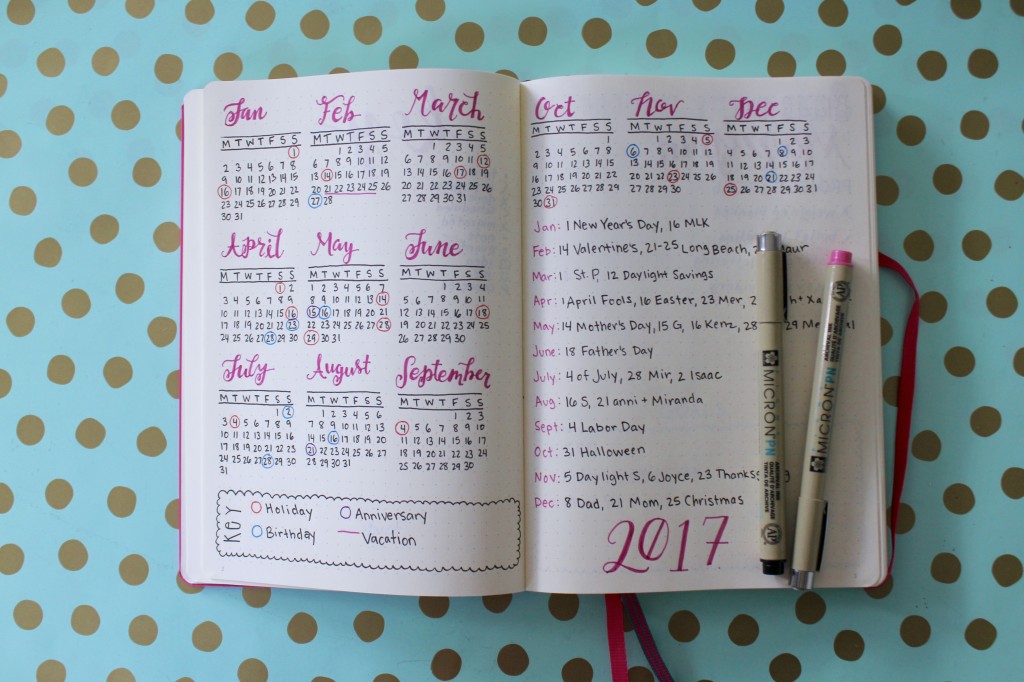 Jan
M T W T F S S
1
2 3 4 5 6 7 8
9 10 11 12 13 14 15
16 17 18 19 20 21 22
23 24 25 26 27 28 29
30 31
Feb
M T W T F S S
1 2 3 4 5
6 7 8 9 10 11 12
13 14 15 16 17 18 19
20 21 22 23 24 25 26
27 28
March
M T W T F S S
1 2 3 4 5
6 7 8 9 10 11 12
13 14 15 16 17 18 19
20 21 22 23 24 25 26
27 28 29 30 31
April
M T W T F S S
1 2
3 4 5 6 7 8 9
10 11 12 13 14 15 16
17 18 19 20 21 22 23
24 25 26 27 28 29 30
May
M T W T F S S
1 2 3 4 5 6 7
8 9 10 11 12 13 14
15 16 17 18 19 20 21
22 23 24 25 26 27 28
29 30 31
June
M T W T F S S
1 2 3 4
5 6 7 8 9 10 11
12 13 14 15 16 17 18
19 20 21 22 23 24 25
26 27 28 29 30
July
M T W T F S S
1 2
3 4 5 6 7 8 9
10 11 12 13 14 15 16
17 18 19 20 21 22 23
24 25 26 27 28 29 30
31
August
M T W T F S S
1 2 3 4 5 6
7 8 9 10 11 12 13
14 15 16 17 18 19 20
21 22 23 24 25 26 27
28 29 30 31
September
M T W T F S S
1 2 3
4 5 6 7 8 9 10
11 12 13 14 15 16 17
18 19 20 21 22 23 24
25 26 27 28 29 30
KEY
Holiday
Anniversary
Birthday
Vacation
Oct
M T W T F S S
1
2 3 4 5 6 7 8
9 10 11 12 13 14 15
16 17 18 19 20 21 22
23 24 25 26 27 28 29
30 31
Nov
M T W T F S S
1 2 3 4 5
6 7 8 9 10 11 12
13 14 15 16 17 18 19
20 21 22 23 24 25 26
27 28 29 30
Dec
M T W T F S S
1 2 3
4 5 6 7 8 9 10
11 12 13 14 15 16 17
18 19 20 21 22 23 24
25 26 27 28 29 30 31
Jan: 1 New Year's Day, 16 MLK
Feb: 14 Valentine's, 21-25 Long Beach,
Mar: St. P, 12 Daylight Savings
Apr: 1 April Fools, 16 Easter, 23 Mer,
May: 14 Mother's Day, 15 G, 16 Kenz, 28 29
June: 18 Father's Day
July: 4 of July, 28 Mir, 2 Isaac
Aug: 16 S, 21 anni + Miranda
Sept: 4 Labor Day
Oct: 31 Halloween
Nov: 5 Daylight S, 6 Joyce, 23
Dec: 8 Dad, 21 Mom, 25 Christmas
2017
MICRON PN
MICRON PN